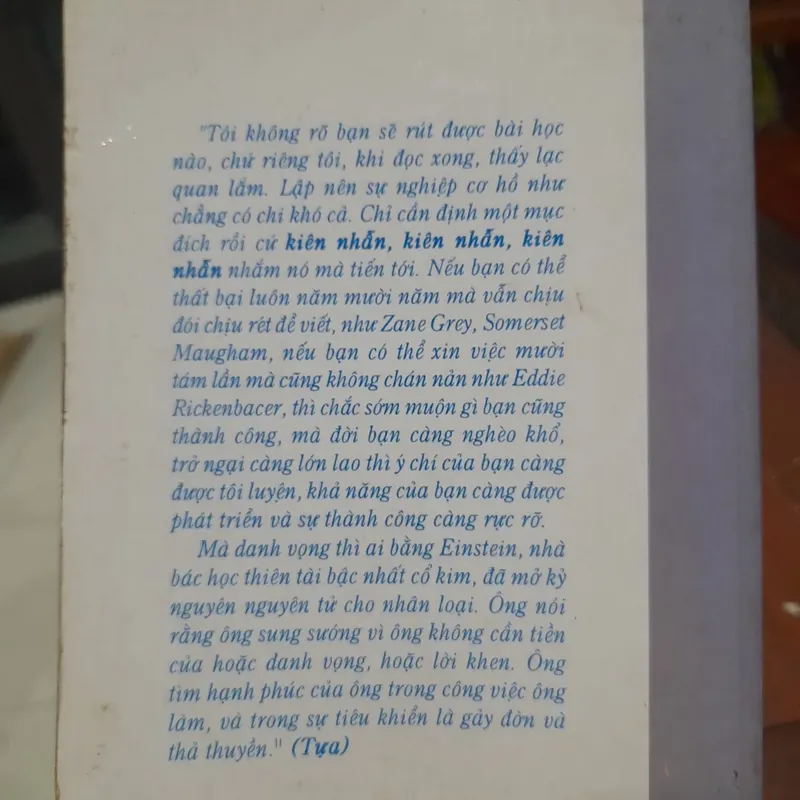 "Tôi không rõ bạn sẽ rút được bài học
nào, chứ riêng tôi, khi đọc xong, thấy lạc
quan lắm. Lập nên sự nghiệp cơ hồ như
chẳng có chi khó cả. Chỉ cần định một mục
đích rồi cứ kiên nhẫn, kiên nhẫn, kiên
nhẫn nhắm nó mà tiến tới. Nếu bạn có thể
thất bại luôn năm mười năm mà vẫn chịu
đói chịu rét để viết, như Zane Grey, Somerset
Maugham, nếu bạn có thể xin việc mười
tám lần mà cũng không chán nản như Eddie
Rickenbacer, thì chắc sớm muộn gì bạn cũng
thành công, mà đời bạn càng nghèo khổ,
trở ngại càng lớn lao thì ý chí của bạn càng
được tôi luyện, khả năng của bạn càng được
phát triển và sự thành công càng rực rỡ.
Mà danh vọng thì ai bằng Einstein, nhà
bác học thiên tài bậc nhất cổ kim, đã mở kỷ
nguyên nguyên tử cho nhân loại. Ông nói
rằng ông sung sướng vì ông không cần tiền
của hoặc danh vọng, hoặc lời khen. Ông
tìm hạnh phúc của ông trong công việc ông
làm, và trong sự tiêu khiển là gảy đờn và
thả thuyền." (Tựa)